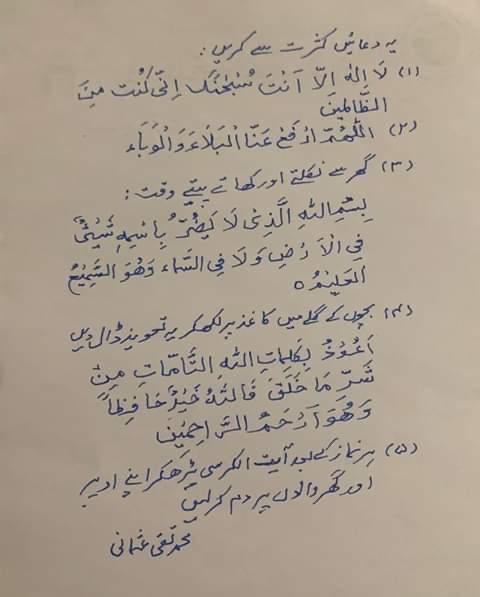 یہ دعائیں کثرت سے کریں:
(۱) لَا اِلٰهَ اِلَّا اَنْتَ سُبْحٰنَكَ اِنِّی كُنْتُ مِنَ
الظَّالِمِيْنَ
(۲) اَللّٰهُمَّ ادْفَعْ عَنَّا الْبَلَاءَ وَالْوَبَاءَ
(۳) گھر سے نکلتے اور کھاتے پیتے وقت:
بِسْمِ اللهِ الَّذِیْ لَا يَضُرُّ بِاسْمِهٖ شَیْئٌ
فِی الْاَرْضِ وَلَا فِی السَّمَاء وَهُوَ السَّمِيْعُ
الْعَلِيْمُ ه
(۴) بچوں کے گلے میں کاغذ پر لکھ کر یہ تعویذ ڈال دیں
اَعُوْذُ بِكَلِمَاتِ اللهِ التَّامَّاتِ مِنْ
شَرِّ مَا خَلَقَ فَاللهُ خَيْرٌ حَافِظًا
وَهُوَ اَرْحَمُ الرَّاحِمِيْنَ
(۵) ہر نماز کے بعد آیت الکرسی پڑھکر اپنے اوپر
اور گھر والوں پر دم کرلیں
محمد تقی عثمانی